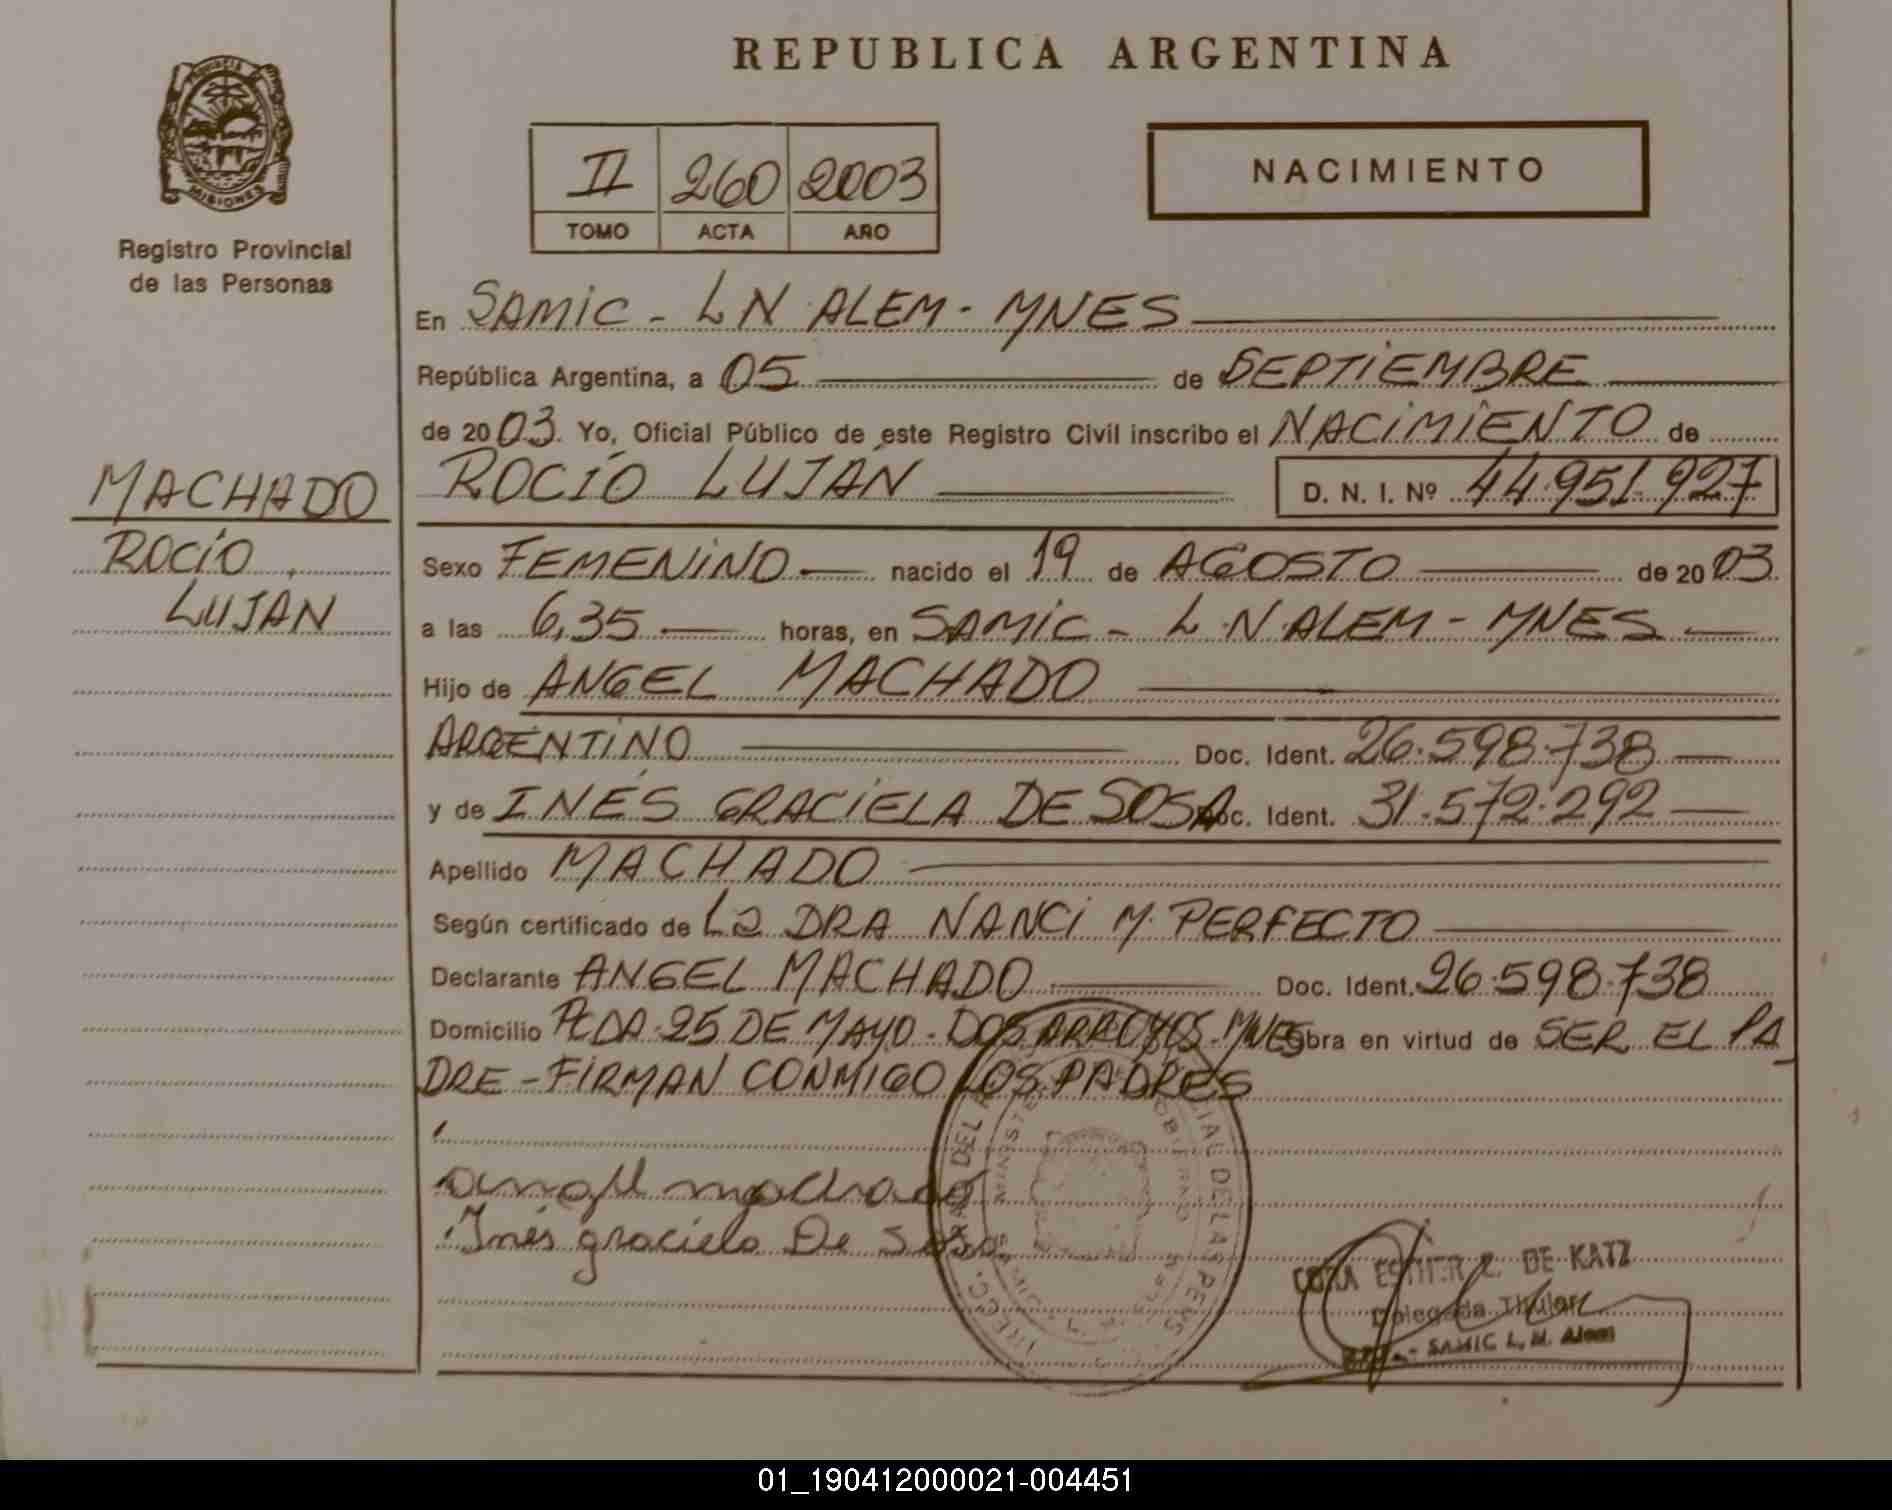 REPUBLICA ARGENTINA
PROVINCIA DE
MISIONES
Registro Provincial
de las Personas
II 260 2003
TOMO ACTA AÑO
NACIMIENTO
En SAMIC - L N ALEM - MNES
República Argentina, a 05 de SEPTIEMBRE
de 2003. Yo, Oficial Público de este Registro Civil inscribo el NACIMIENTO de
MACHADO
ROCÍO LUJAN
ROCÍO LUJÁN D. N. I. Nº 44.951.927
Sexo FEMENINO nacido el 19 de AGOSTO de 2003.
a las 6,35 horas, en SAMIC - L.N.ALEM - MNES
Hijo de ANGEL MACHADO
ARGENTINO Doc. Ident. 26.598.738
y de INÉS GRACIELA DE SOSA Doc. Ident. 31.572.292
Apellido MACHADO
Según certificado de La DRA NANCI M. PERFECTO
Declarante ANGEL MACHADO Doc. Ident. 26.598.738
Domicilio PCDA. 25 DE MAYO - DOS ARROYOS - MNES Obra en virtud de SER EL PA
DRE - FIRMAN CONMIGO LOS PADRES
angel machado
Inés graciela De Sosa
CORA ESTHER Z. DE KATZ
Delegada Titular
SAMIC L. N. Alem
01_190412000021-004451